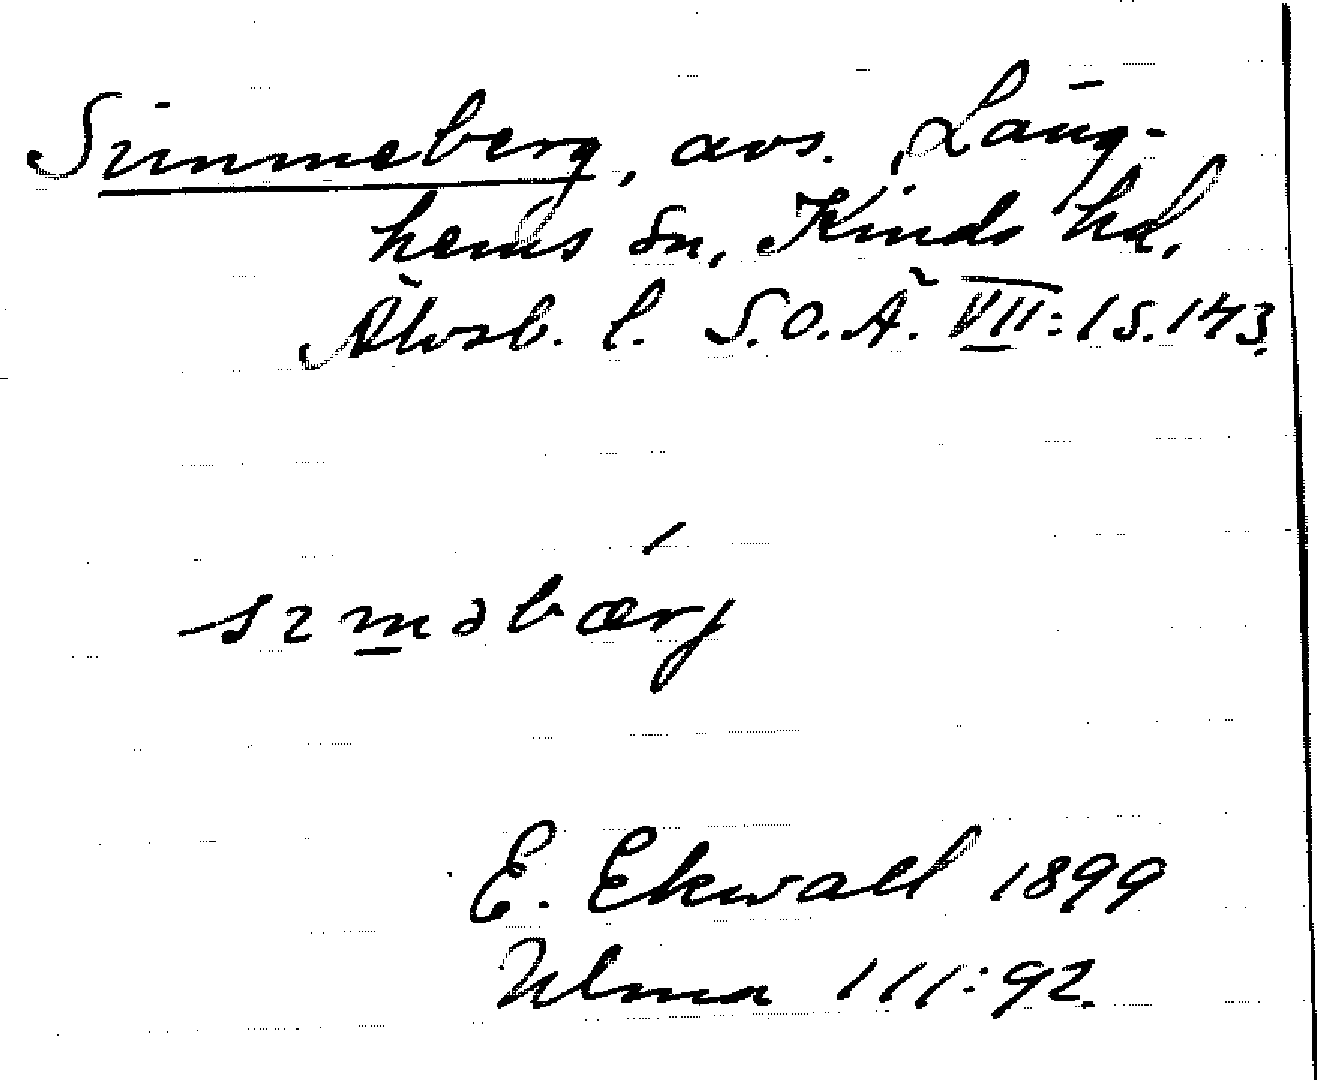 Simmeberg, avs. Lång-
hems sn, Kinds hd,
Älvsb. l. S.O.Ä. VII:1 S.143.
sɪm̲əbæ´rj
E. Ekwall 1899
Ulma 111:92.